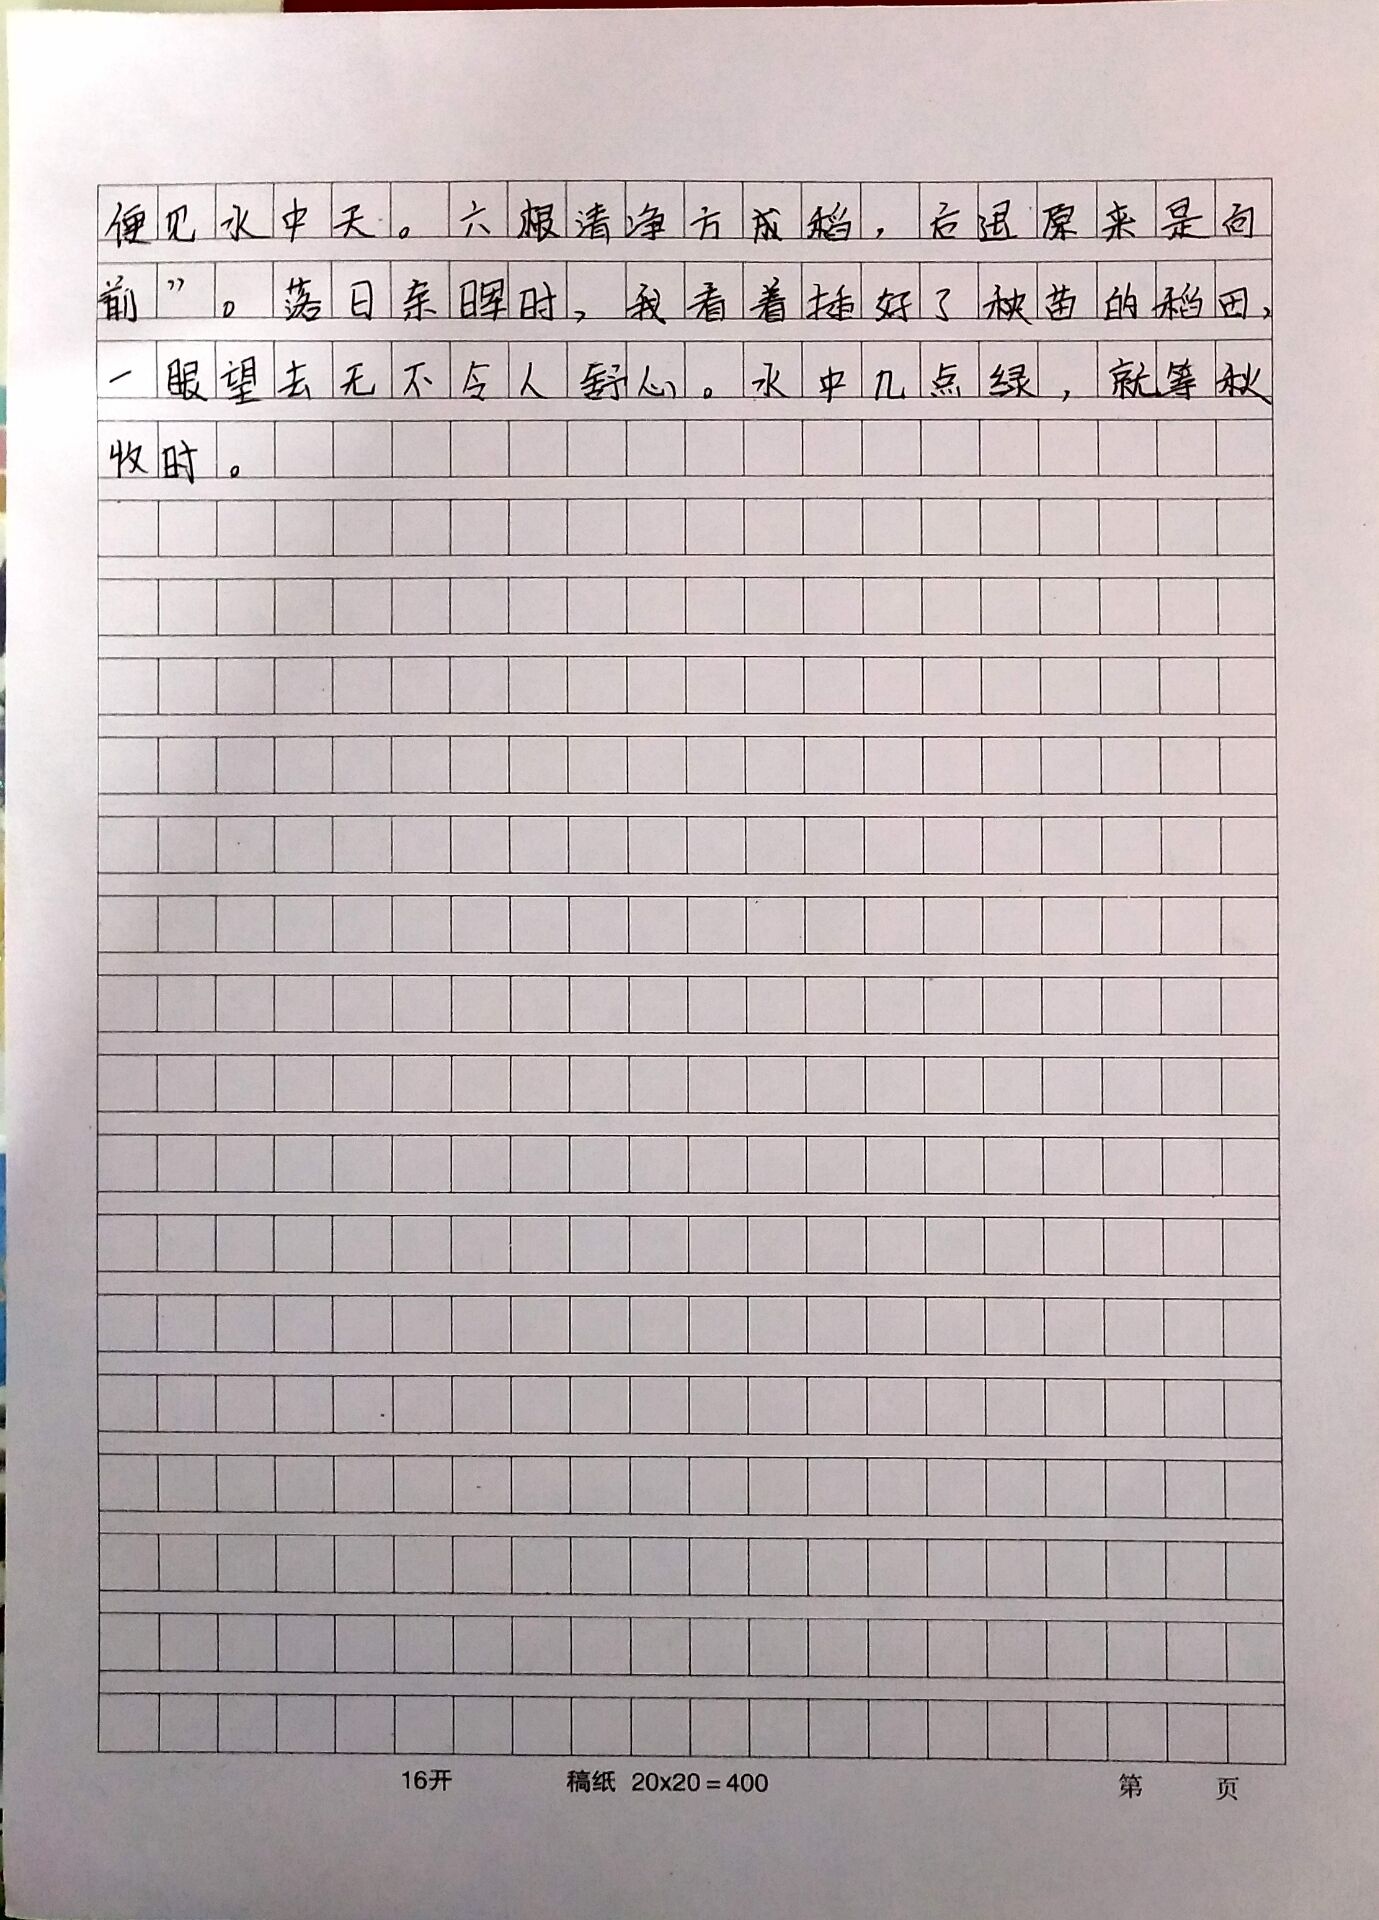 便见水中天。六根清净方成稻，后退原来是向
前”。落日余晖时，我看着插好了秧苗的稻田，
一眼望去无不令人舒心。水中几点绿，就等秋
收时。
16开 稿纸 20x20=400 第 页